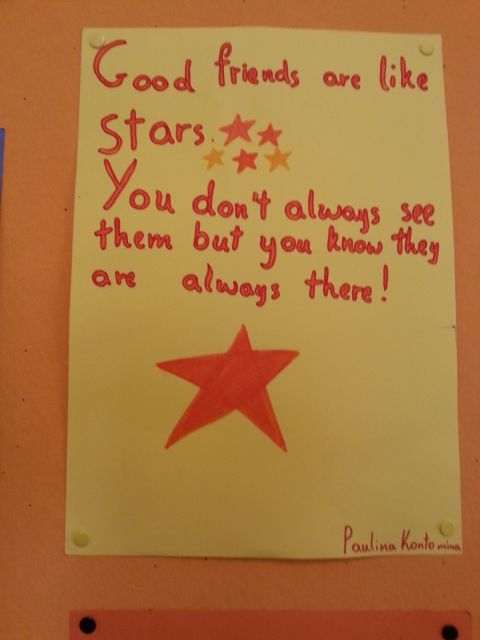 Good friends are like
stars.
You don't always see
them but you know they
are always there!
Paulina Kontomina